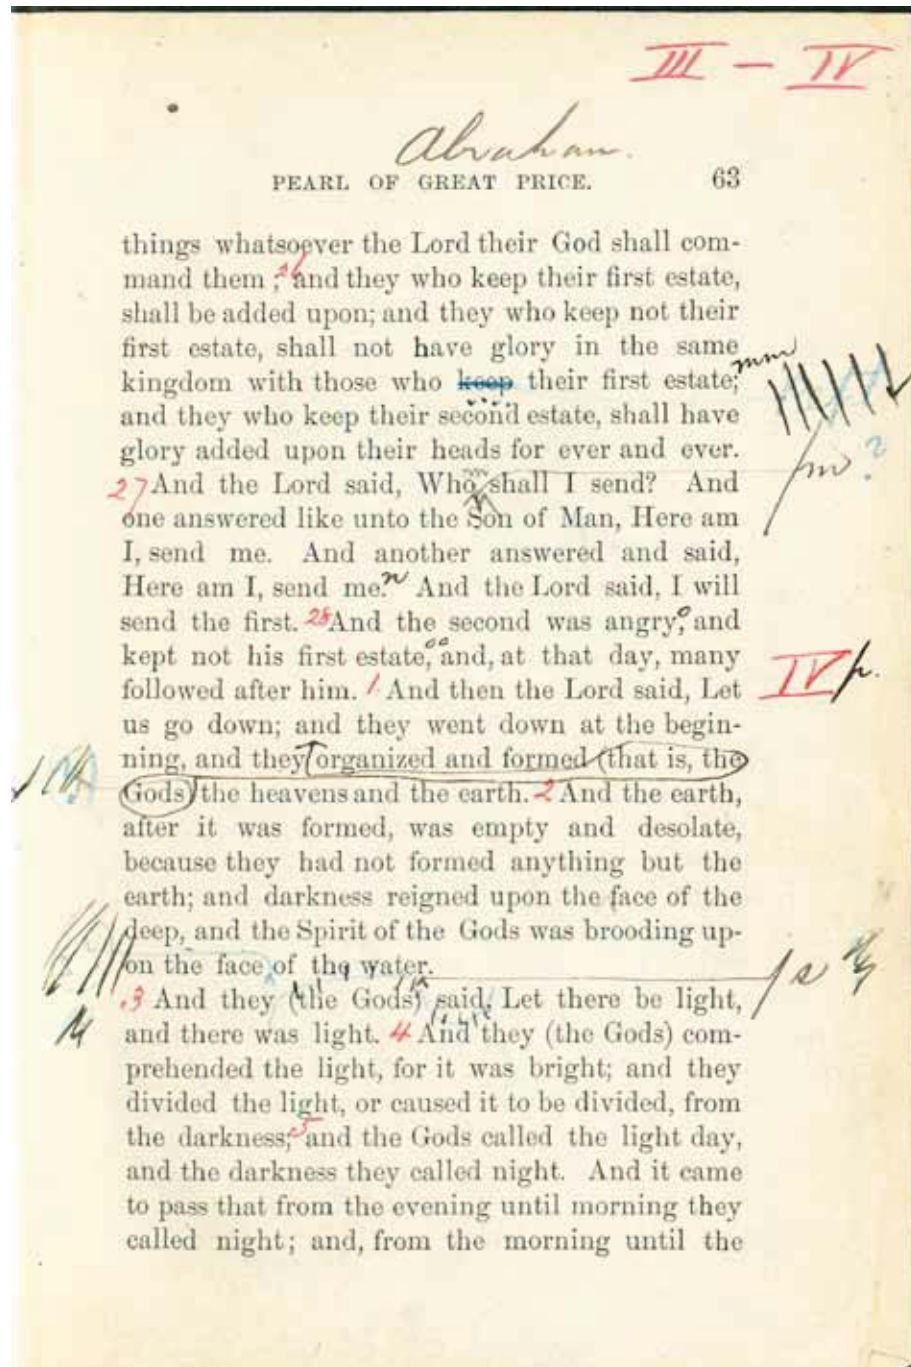 III – IV
Abraham.
PEARL OF GREAT PRICE. 63
things whatsoever the Lord their God shall com-
mand them ; 26 and they who keep their first estate,
shall be added upon; and they who keep not their
first estate, shall not have glory in the same
kingdom with those who keep their first estate;
and they who keep their second estate, shall have
glory added upon their heads for ever and ever.
27 And the Lord said, Who shall I send? And
one answered like unto the Son of Man, Here am
I, send me. And another answered and said,
Here am I, send me. And the Lord said, I will
send the first. 28 And the second was angry, and
kept not his first estate, and, at that day, many
followed after him. 1 And then the Lord said, Let
IV
us go down; and they went down at the begin-
ning, and they organized and formed (that is, the
Gods) the heavens and the earth. 2 And the earth,
after it was formed, was empty and desolate,
because they had not formed anything but the
earth; and darkness reigned upon the face of the
deep, and the Spirit of the Gods was brooding up-
on the face of the water.
3 And they (the Gods) said, Let there be light,
and there was light. 4 And they (the Gods) com-
prehended the light, for it was bright; and they
divided the light, or caused it to be divided, from
the darkness; 5 and the Gods called the light day,
and the darkness they called night. And it came
to pass that from the evening until morning they
called night; and, from the morning until the